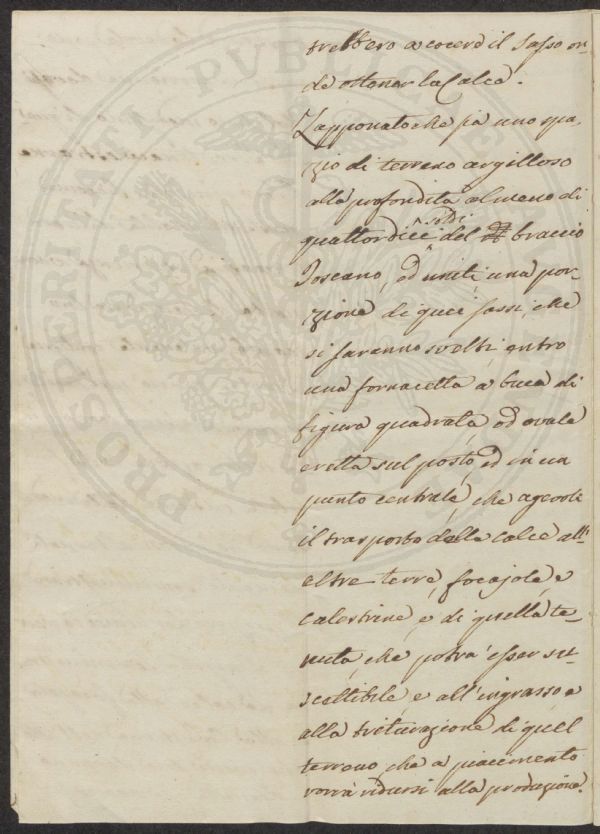 trebbero a cocerd il Sasso on-
de ottener la Calce.
Zapponato che sia uno spa-
zio di terreno argilloso
alla profondità almeno di
quattordici soldi del braccio
Toscano, ed uniti, una por-
zione di quei sassi, che
si faranno svelti, entro
una fornacetta a buca di
figura quadrata, od ovale
eretta sul posto, ed in un
punto centrale, che agevoli
il trasporto della calce all'
altre terre, focajole, e
calestrine, e di quella te-
nuta, che potrà esser su-
scettibile, e all'ingrasso, e
alla triturazione di quel
terreno, che a piacimento
vorrà ridursi alla produzione.
PROSPERITATI PUBLICAE